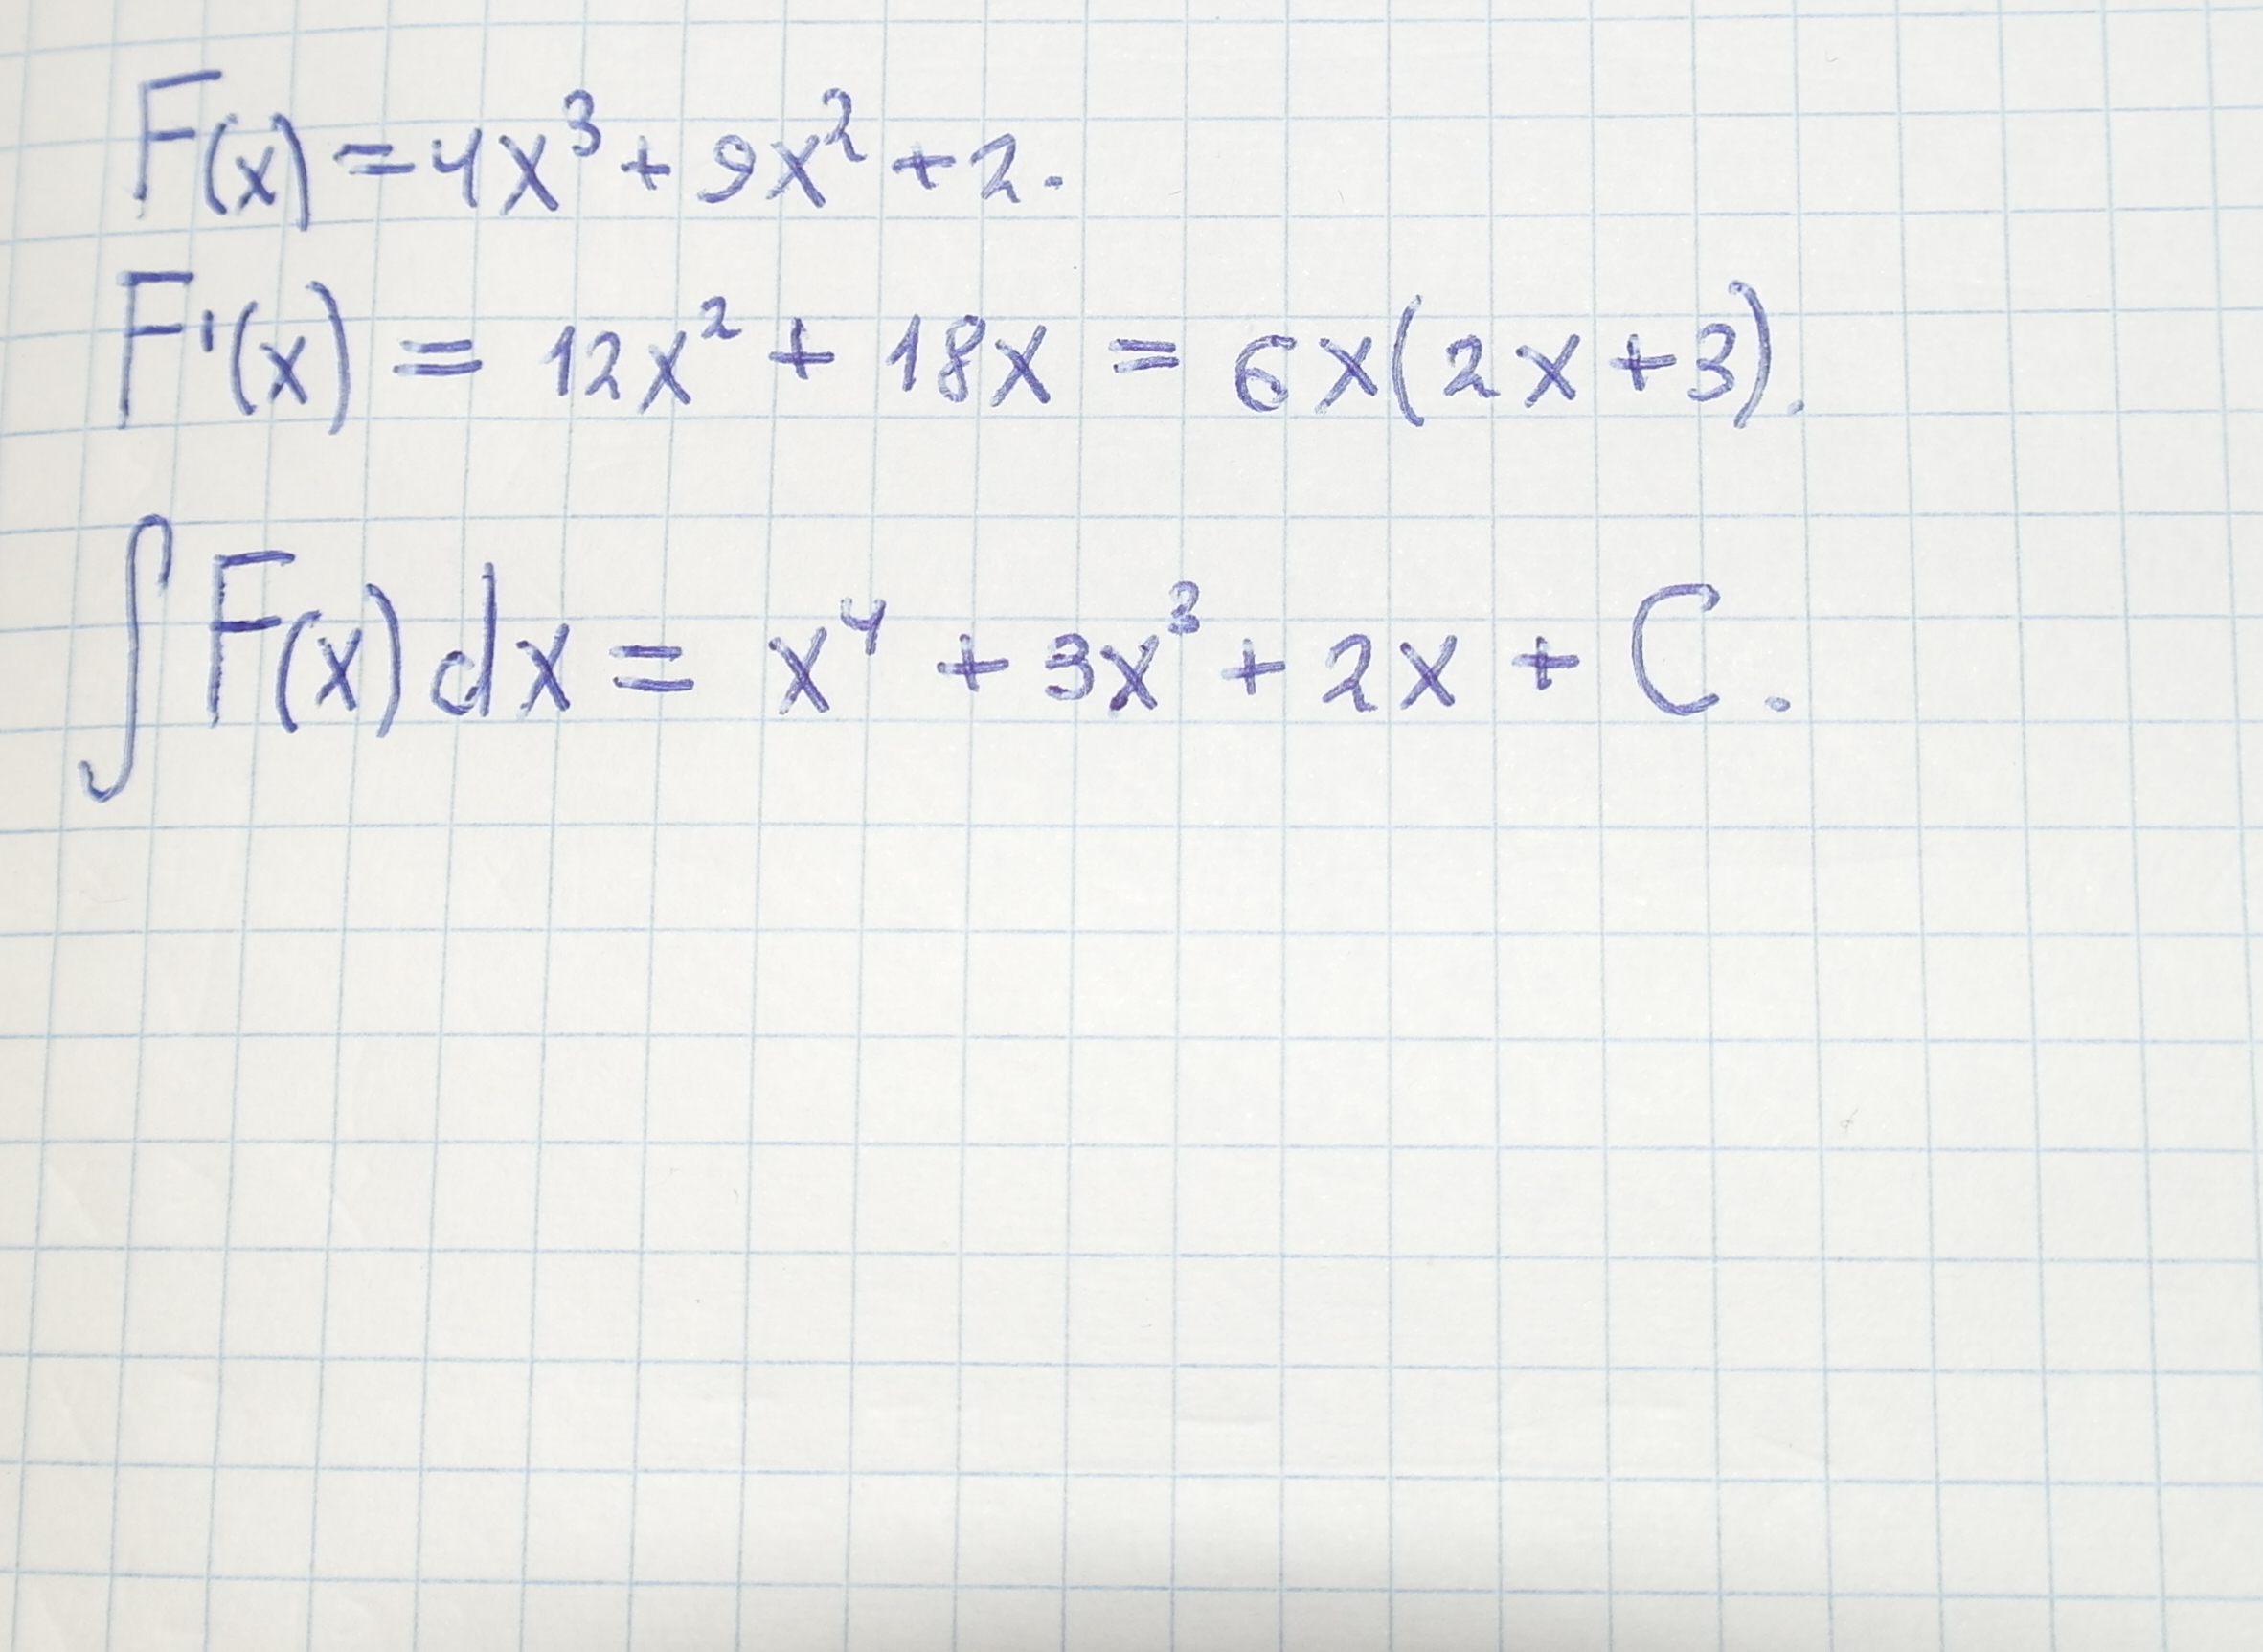 F(x) = 4x³ + 9x² + 2.
F'(x) = 12x² + 18x = 6x(2x+3).
∫F(x)dx = x⁴ + 3x³ + 2x + C.